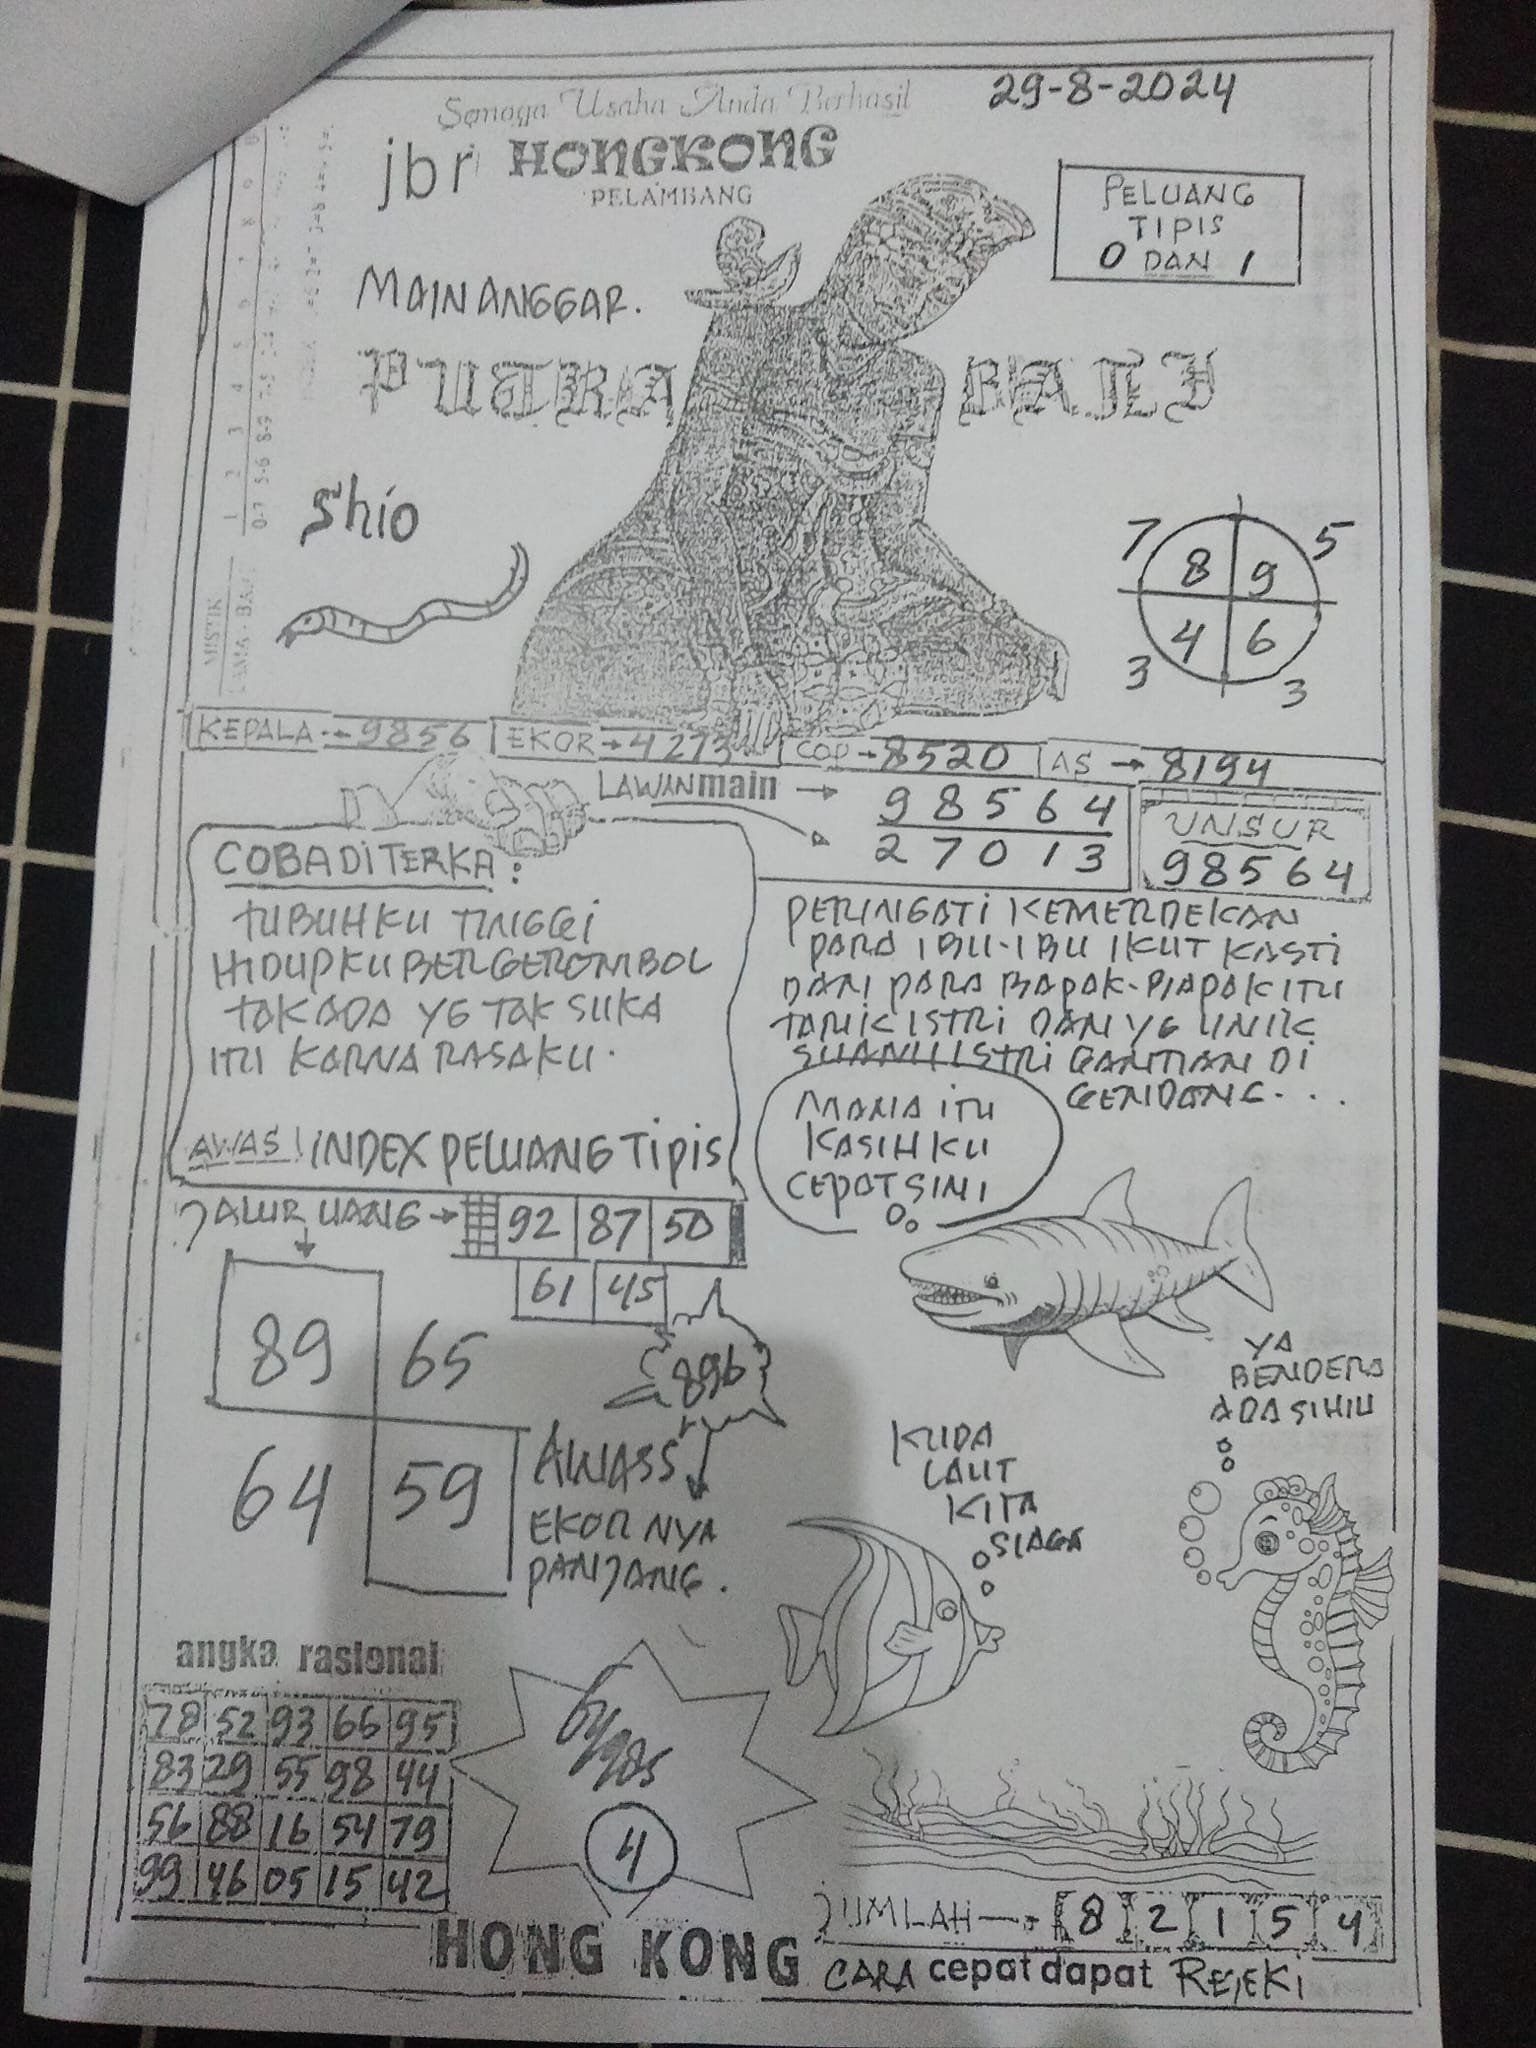 29-8-2024
Semoga Usaha Anda Berhasil
jbr HONGKONG
PELAMBANG
PELUANG
TIPIS
0 DAN 1
MAIN ANGGAR.
PUTRA BALI
Shio
7 5
8 9
4 6
3 3
MISTIK
KEPALA → 9856 EKOR → 4273 COP → 8520 AS → 8194
LAWAN main → 98564
27013
UNSUR
98564
COBA DITERKA :
TUBUHKU TINGGI
HIDUPKU BERGEROMBOL
TAK ADA YG TAK SUKA
ITU KARNA RASAKU.
AWAS! INDEX PELUANG TIPIS
PERINGATI KEMERDEKAN
PARA IBU-IBU IKUT KASTI
DARI PARA BAPAK-BAPAK ITU
TARIK ISTRI DAN YG UNIK
SUAMI ISTRI GANTIAN DI
GENDANG...
MANA ITU
KASIHKU
CEPAT SINI
JALUR UANG → 92 87 50
61 45
89 65
64 59
896
AWASS
EKOR NYA
PANJANG.
YA
BENDERA
ADA SIHIU
KUDA
LAUT
KITA
SIAGA
angka rasional
78 52 93 66 95
83 29 55 98 44
56 88 16 54 79
99 46 05 15 42
64/985
4
JUMLAH → 8 2 1 5 4
HONG KONG CARA cepat dapat REJEKI